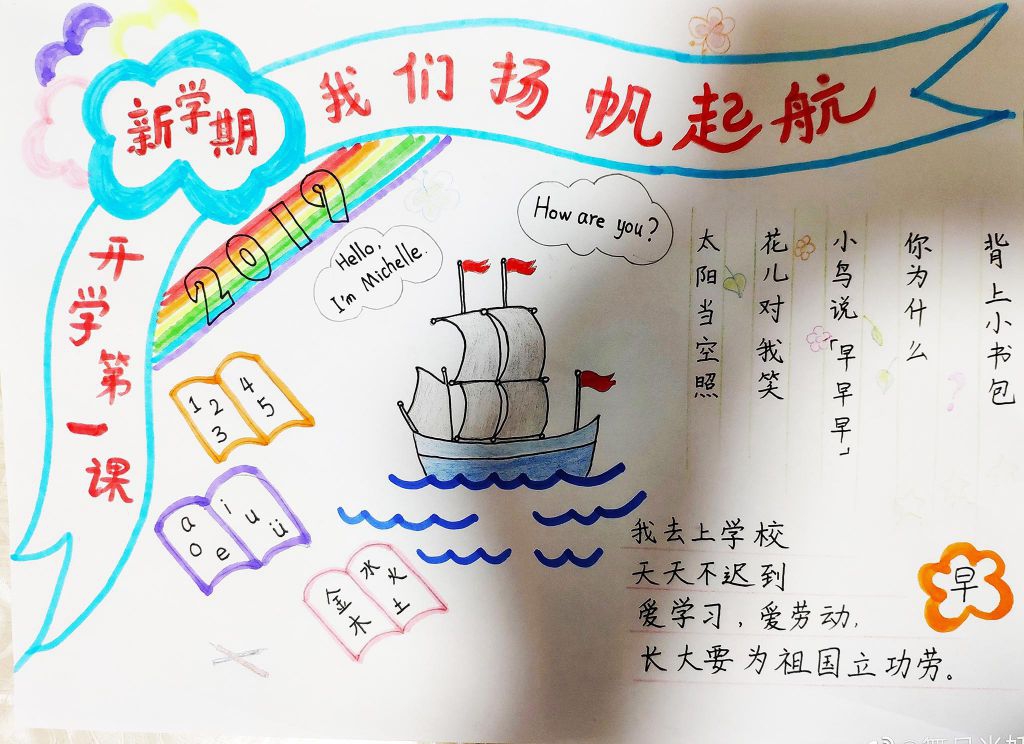 我们扬帆起航
新学期
开学第一课
2019
Hello,
I'm Michelle.
How are you?
太阳当空照
花儿对我笑
小鸟说「早早早」
你为什么
背上小书包
1 2 3
4 5
a o e
i u ü
金木
水火土
我去上学校
天天不迟到
爱学习，爱劳动，
长大要为祖国立功劳。
早